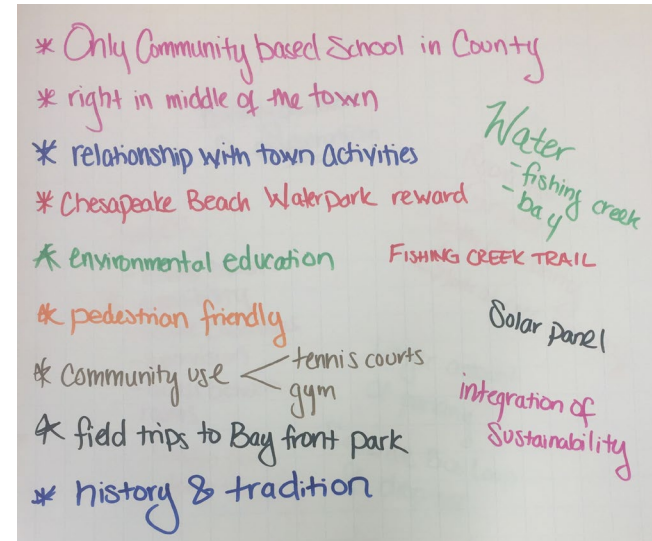 * Only Community based School in County
* right in middle of the town
* relationship with town activities
* Chesapeake Beach Waterpark reward
* environmental education
* pedestrian friendly
* Community use < tennis courts
gym
* field trips to Bay front park
* history & tradition
Water
- fishing creek
- bay
FISHING CREEK TRAIL
Solar panel
integration of
Sustainability